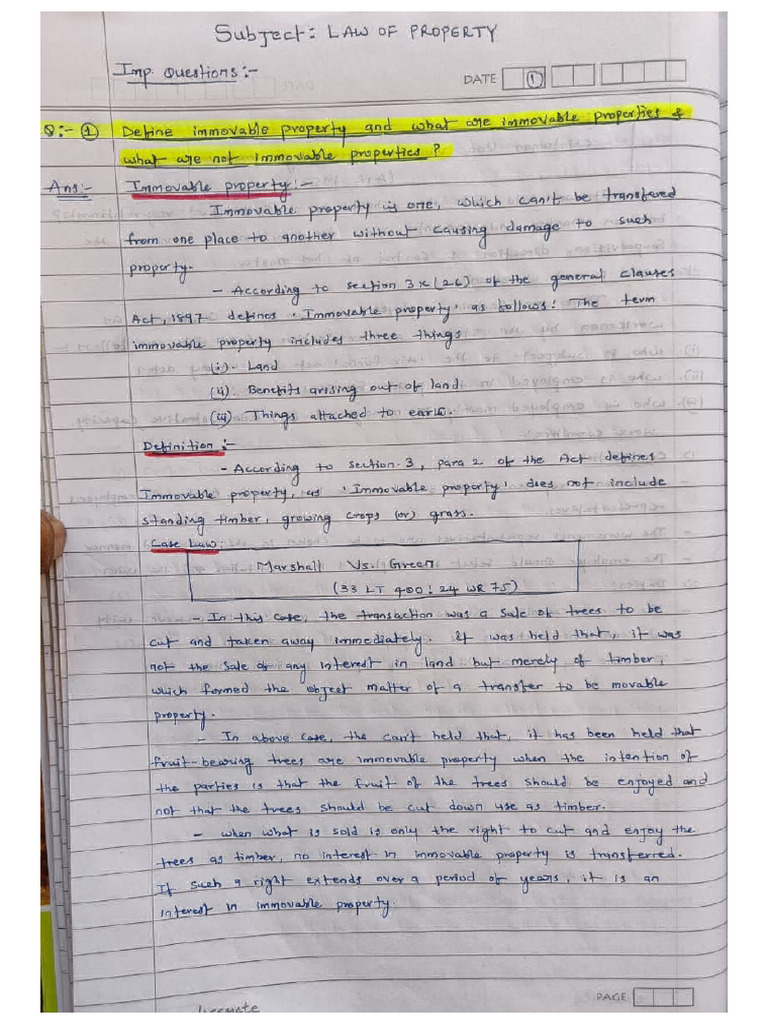 Subject: LAW OF PROPERTY
Imp. Questions:-
DATE 1
Q:- 1 Define immovable property and what are immovable properties &
what are not immovable properties?
Ans:- Immovable property:-
Immovable property is one, which can't be transfered
from one place to another without causing damage to such
property.
- According to section 3x(26) of the general clauses
Act, 1897 defines 'Immovable property' as follows: The term
immovable property includes three things
(i). Land
(ii). Benefits arising out of land
(iii). Things attached to earth.
Definition:-
- According to section-3, para 2 of the Act defines
Immovable property, as 'Immovable property' does not include
standing timber, growing crops (or) grass.
Case Law:
Marshall Vs. Green
(33 LT 400: 24 WR 75)
- In this case, the transaction was a sale of trees to be
cut and taken away immediately. It was held that, it was
not the sale of any interest in land but merely of timber,
which formed the object matter of a transfer to be movable
property.
- In above case, the can't held that, it has been held that
fruit-bearing trees are immovable property when the intention of
the parties is that the fruit of the trees should be enjoyed and
not that the trees should be cut down use as timber.
- when what is sold is only the right to cut and enjoy the
trees as timber, no interest in immovable property is transferred.
If such a right extends over a period of years, it is an
interest in immovable property.
PAGE